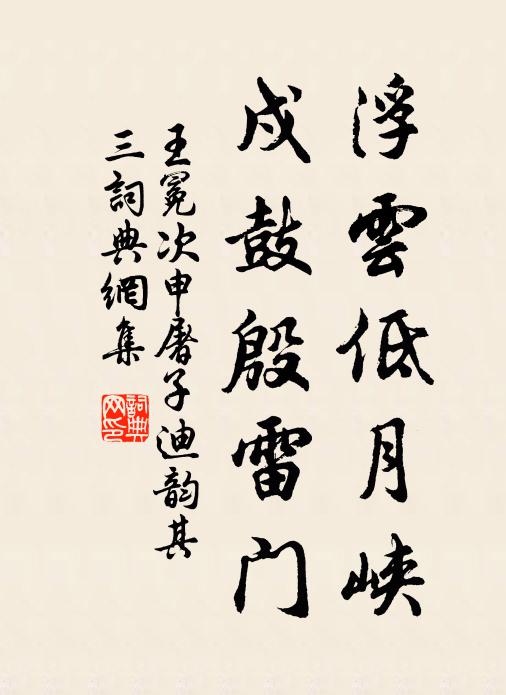 浮雲低月峽
戍鼓殷雷門
王冕次申屠子迪韵其
三詞典網集
詞典网印